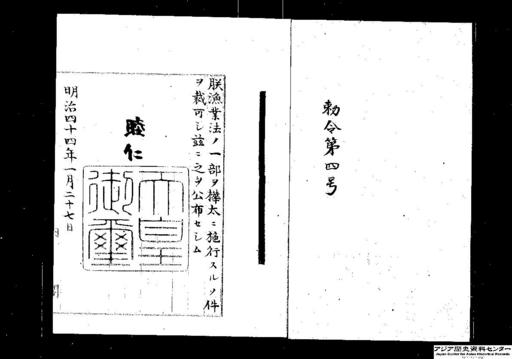 勅令第四号
朕漁業法ノ一部ヲ樺太ニ施行スルノ件
ヲ裁可シ茲ニ之ヲ公布セシム
睦仁
天皇御璽
明治四十四年一月二十七日
アジア歴史資料センター
Japan Center for Asian Historical Records